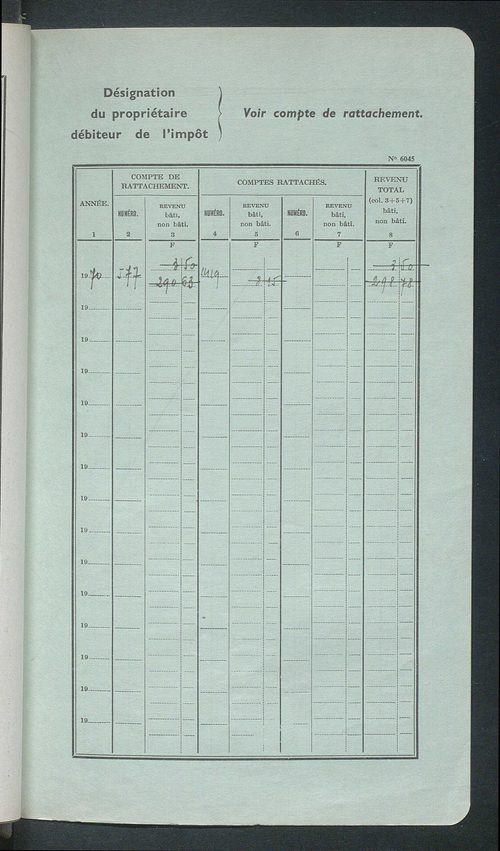 Désignation
du propriétaire
débiteur de l'impôt
Voir compte de rattachement.
Nº 6045
ANNÉE.
1
COMPTE DE
RATTACHEMENT.
NUMÉRO.
2
REVENU
bâti,
non bâti.
3
COMPTES RATTACHÉS.
NUMÉRO.
4
REVENU
bâti,
non bâti.
5
NUMÉRO.
6
REVENU
bâti,
non bâti.
7
REVENU
TOTAL
(col. 3+5+7)
bâti,
non bâti.
8
F F F F
3 50 3 50
1970 577 290 63 8 15 298 78
19
19
19
19
19
19
19
19
19
19
19
19
19
19